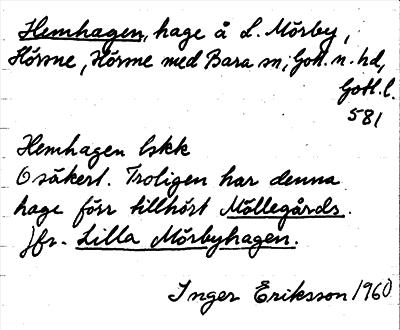 Hemhagen, hage å L. Mörby,
Hörsne, Hörsne med Bara sn, Gotl. n. hd,
Gotl. l.
581
Hemhagen lskk
Osäkert. Troligen har denna
hage förr tillhört Möllegårds.
Jfr. Lilla Mörbyhagen.
Inger Eriksson 1960